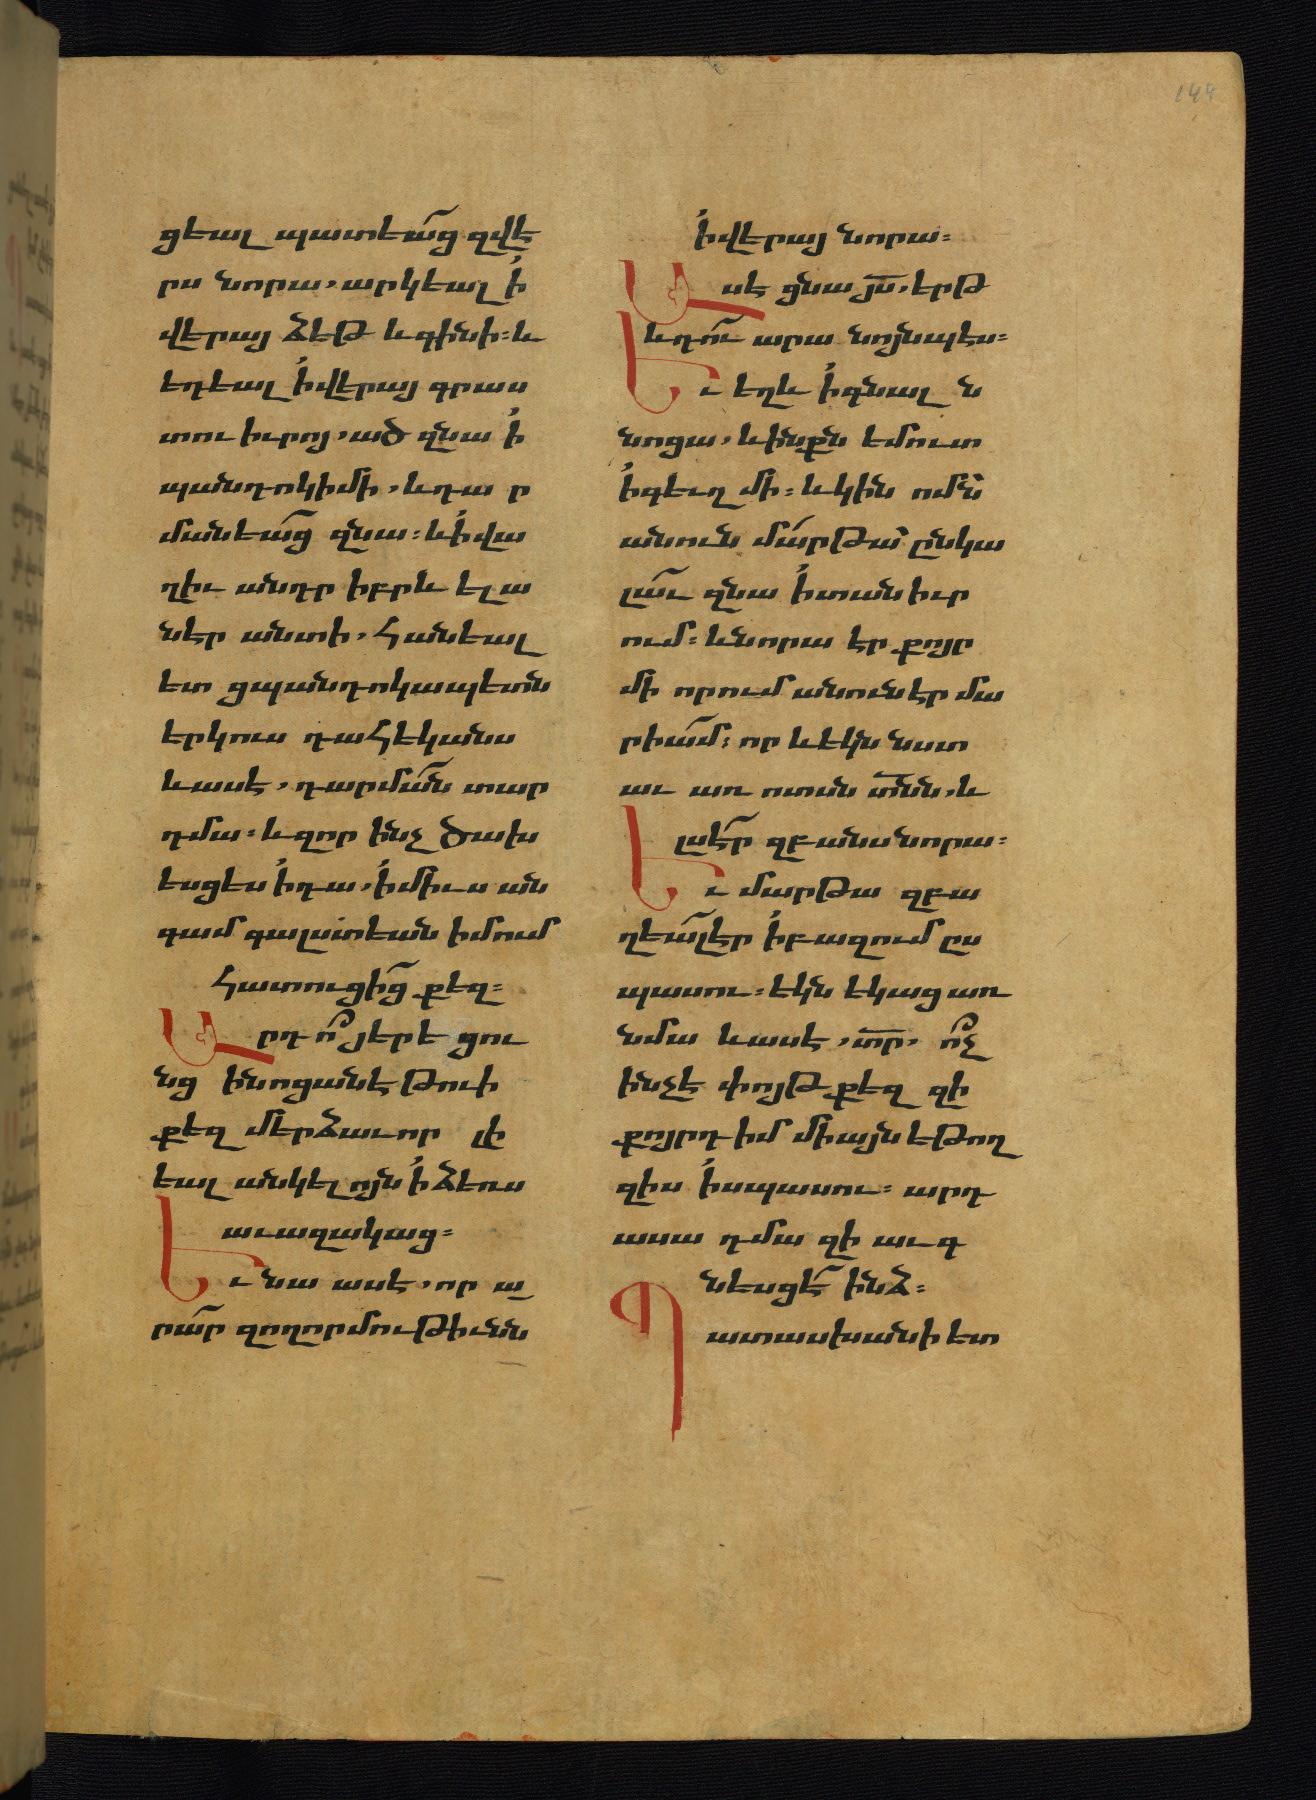 144
ցեալ պատեա՛ց զվէ
րս նորա, արկեալ ի՛
վերայ ձէթ և գինի։ և
եդեալ ի՛ վերայ գրաս
տու իւրոյ, ած զնա ի՛
պանդոկի մի, և դա ր
մանեա՛ց զնա։ և ի՛ վա
ղիւ անդր իբրև ելա
նէր անտի, հանեալ
ետ ցպանդոկապետն
երկուս դահեկանս
և ասէ, դարմա՛ն տար
դմա։ և զոր ինչ ծախ
եսցես ի՛ դա, ի՛ միւս ան
գամ գալստեան իմում
հատուցի՛ց քեզ։
Արդ ո՞ յերե ցու
նց ի նոցանէ թուի
քեզ մերձաւոր լի
եալ անկելոյն ի՛ ձեռս
աւազակաց։
Եւ նա ասէ, որ ա
րա՛ր զողորմութիւնն
ի՛ վերայ նորա։
Ասէ ցնա յս̅, երթ
և դո՛ւ արա նոյնպէս։
Եւ եղև ի՛ գնալ ն
նոցա, և ինքն եմուտ
ի՛ գեւղ մի։ և կին ոմն
անուն մա՛րթա՛ ընկա
լա՛ւ զնա ի՛ տան իւր
ում։ և նորա էր քոյր
մի որում անուն էր մա
րիա՛մ։ որ և եկն նստ
աւ առ ոտսն տն̅ն, և
լսէ՛ր զբանս նորա։
Եւ մարթա զբա
ղեա՛լ էր ի՛ բազում ըս
պասու։ եկն եկաց առ
նմա և ասէ, տր̅, ո՞չ
ինչ է փոյթ քեզ զի
քոյրդ իմ միայն եթող
զիս ի՛ սպասու։ արդ
ասա դմա զի աւգ
նեսցէ՛ ինձ։
Պատասխանի ետ